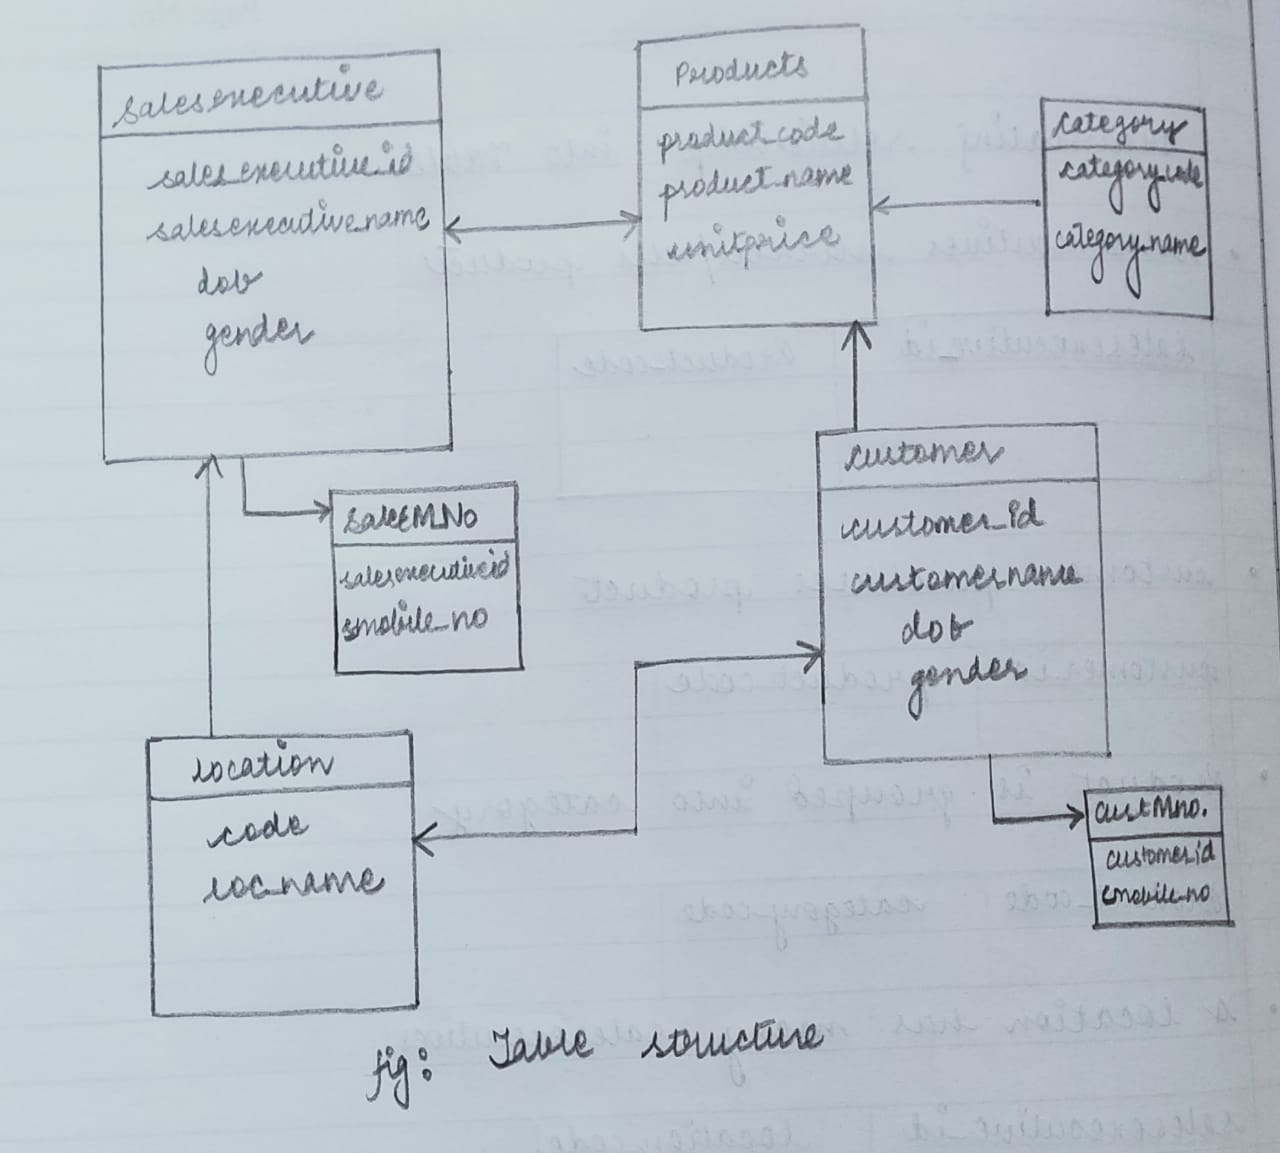 salesexecutive
sales_executive_id
salesexecutive_name
dob
gender
Products
product_code
product_name
unitprice
category
category_code
category_name
saleEMNo
salesexecutiveid
smobile_no
customer
customer_id
customer_name
dob
gender
location
code
loc_name
custMno.
customer_id
cmobile_no
fig: Table structure